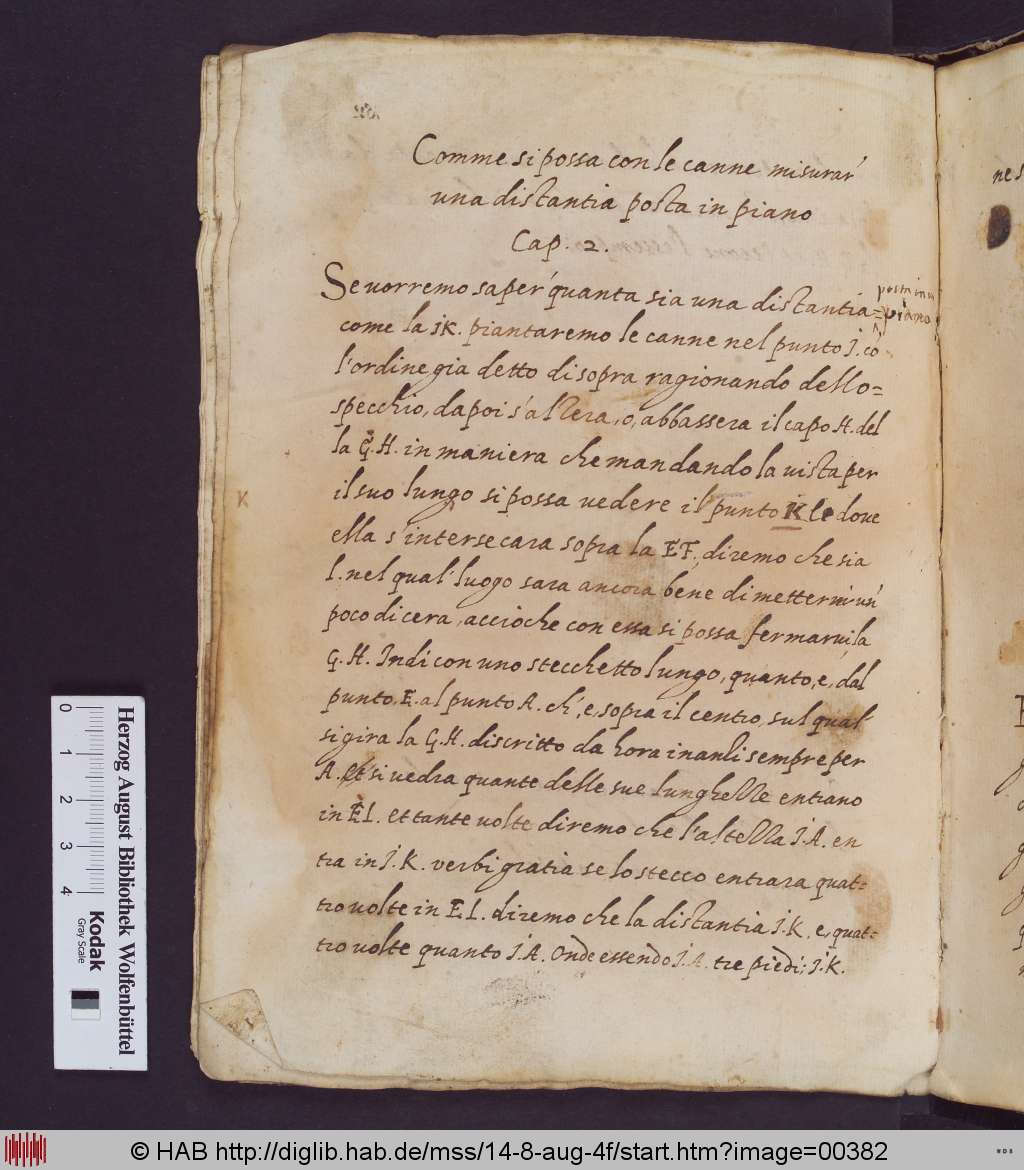 Comme si possa con le canne misurar'
una distantia posta in piano
Cap. 2.
Se uorremo saper' quanta sia una distantia= posta in un piano
come la IK. piantaremo le canne nel punto I. cō
l'ordine gia detto di sopra ragionando dello=
specchio, dapoi s'alzera, o, abbassera il capo H. del
la G.H. in maniera che mandando la uista per
il suo lungo si possa uedere il punto K le doue
K
ella s'intersecara sopra la EF. diremo che sia
L. nel qual' luogo sara ancora bene di metterui un'
poco di cera, accioche con essa si possa fermarui la
G.H. Indi con uno stecchetto lungo, quanto, e, dal
punto. E. al punto A. ch', e, sopra il centro, sul qual'
si gira la G.H. discritto da hora inanzi sempre per
A. et si uedra quante delle sue lunghezze entrano
in EL. et tante uolte diremo che l'altezza I.A. en
tra in I.K. verbi gratia se lo stecco entrara quat=
tro uolte in EL. diremo che la distantia I.K. e, quat=
tro uolte quanto I.A. Onde essendo I.A. tre piedi; I.K.
0 1 2 3 4
Herzog August Bibliothek Wolfenbüttel
Kodak
Gray Scale
© HAB http://diglib.hab.de/mss/14-8-aug-4f/start.htm?image=00382